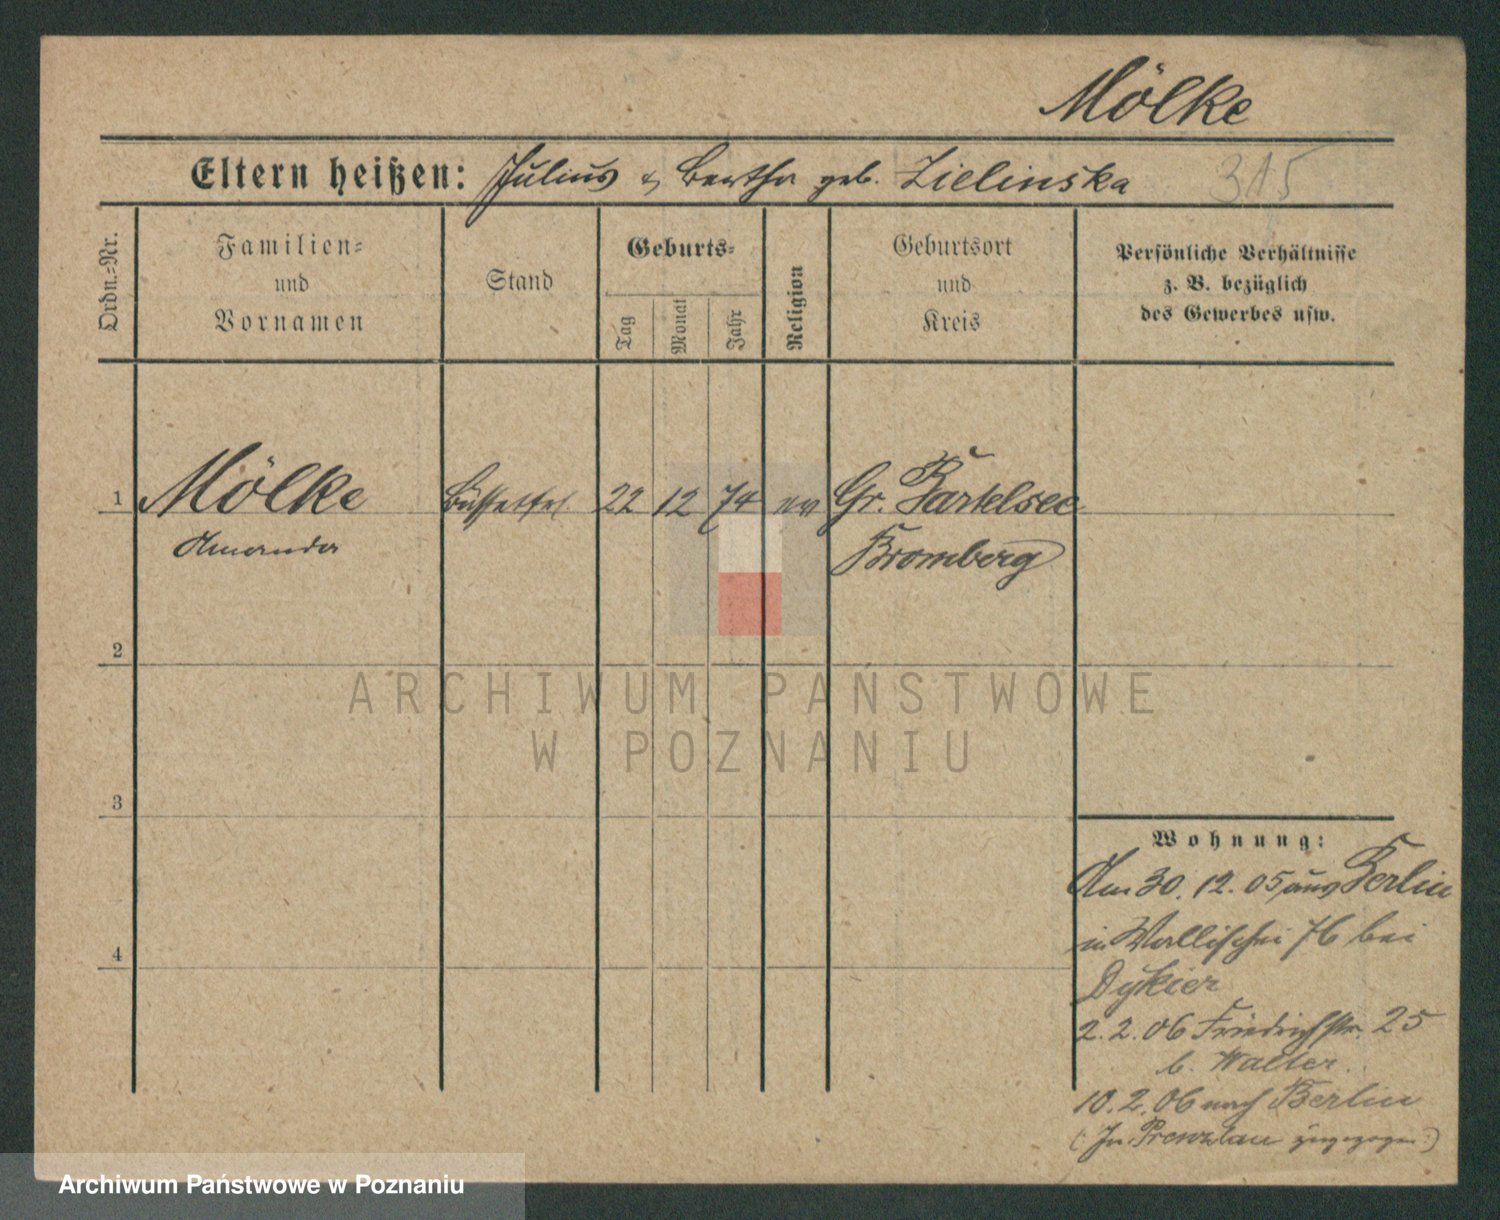 Mölke
Eltern heißen: Julius & Bertha geb. Zielinska 315
Ordn.-Nr.
Familien-
und
Vornamen
Stand
Geburts-
Tag
Monat
Jahr
Religion
Geburtsort
und
Kreis
Persönliche Verhältnisse
z. B. bezüglich
des Gewerbes usw.
1 Mölke Büffetfrl. 22 12 74 ev Gr. Bartelsee
Amanda Bromberg
2
3
4
Wohnung:
Am 30. 12. 05 aus Berlin
in Wallischei 76 bei
Dykier
2. 2. 06 Friedrichstr. 25
b. Walter.
10. 2. 06 nach Berlin
(In Prenzlau zugezogen.)
ARCHIWUM PAŃSTWOWE
W POZNANIU
Archiwum Państwowe w Poznaniu